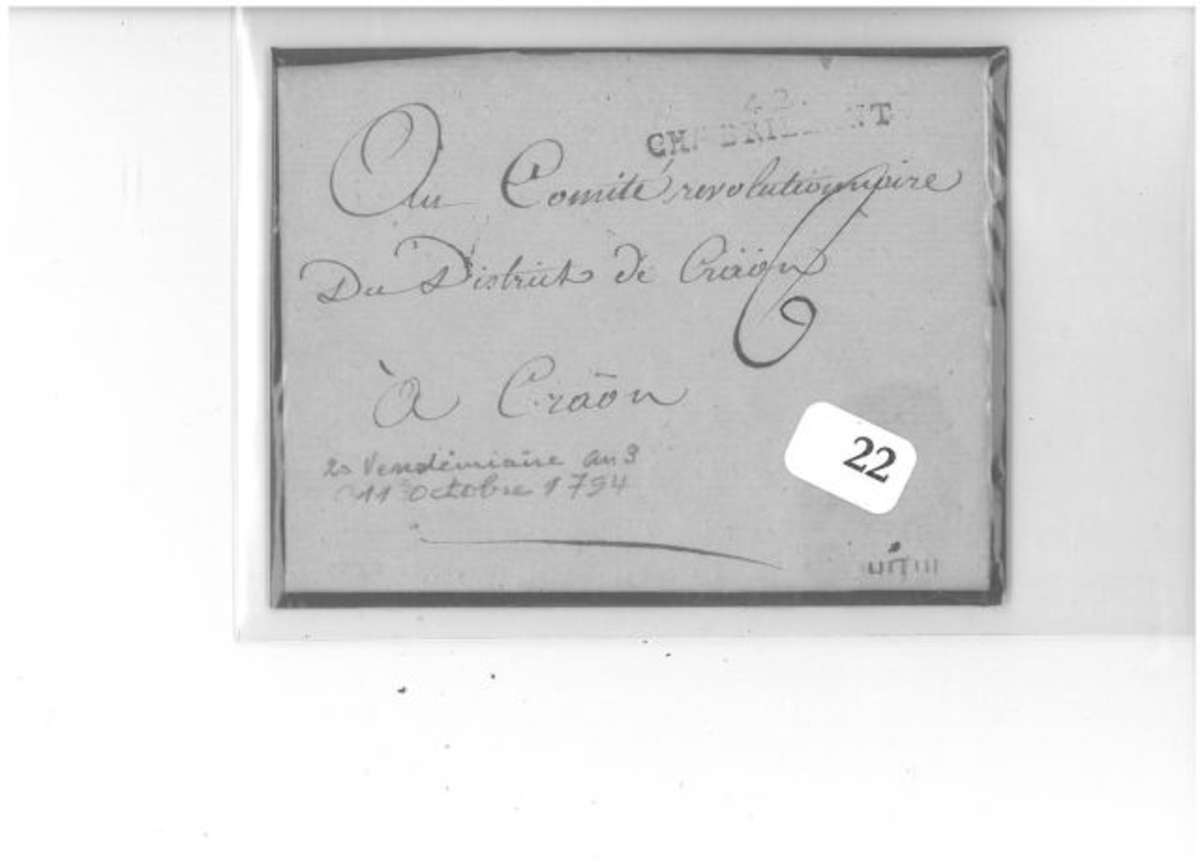 42.
CH BRILL NT
Au Comité révolutionnaire
Du District de Craön
6
à Craön
20 Vendémiaire an 3
11 octobre 1794
22